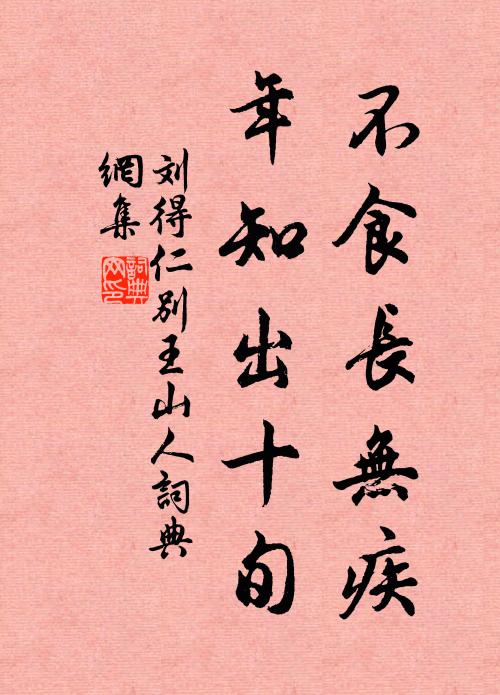 不食長無疾
年知出十旬
刘得仁别王山人詞典
網集
詞典
网印